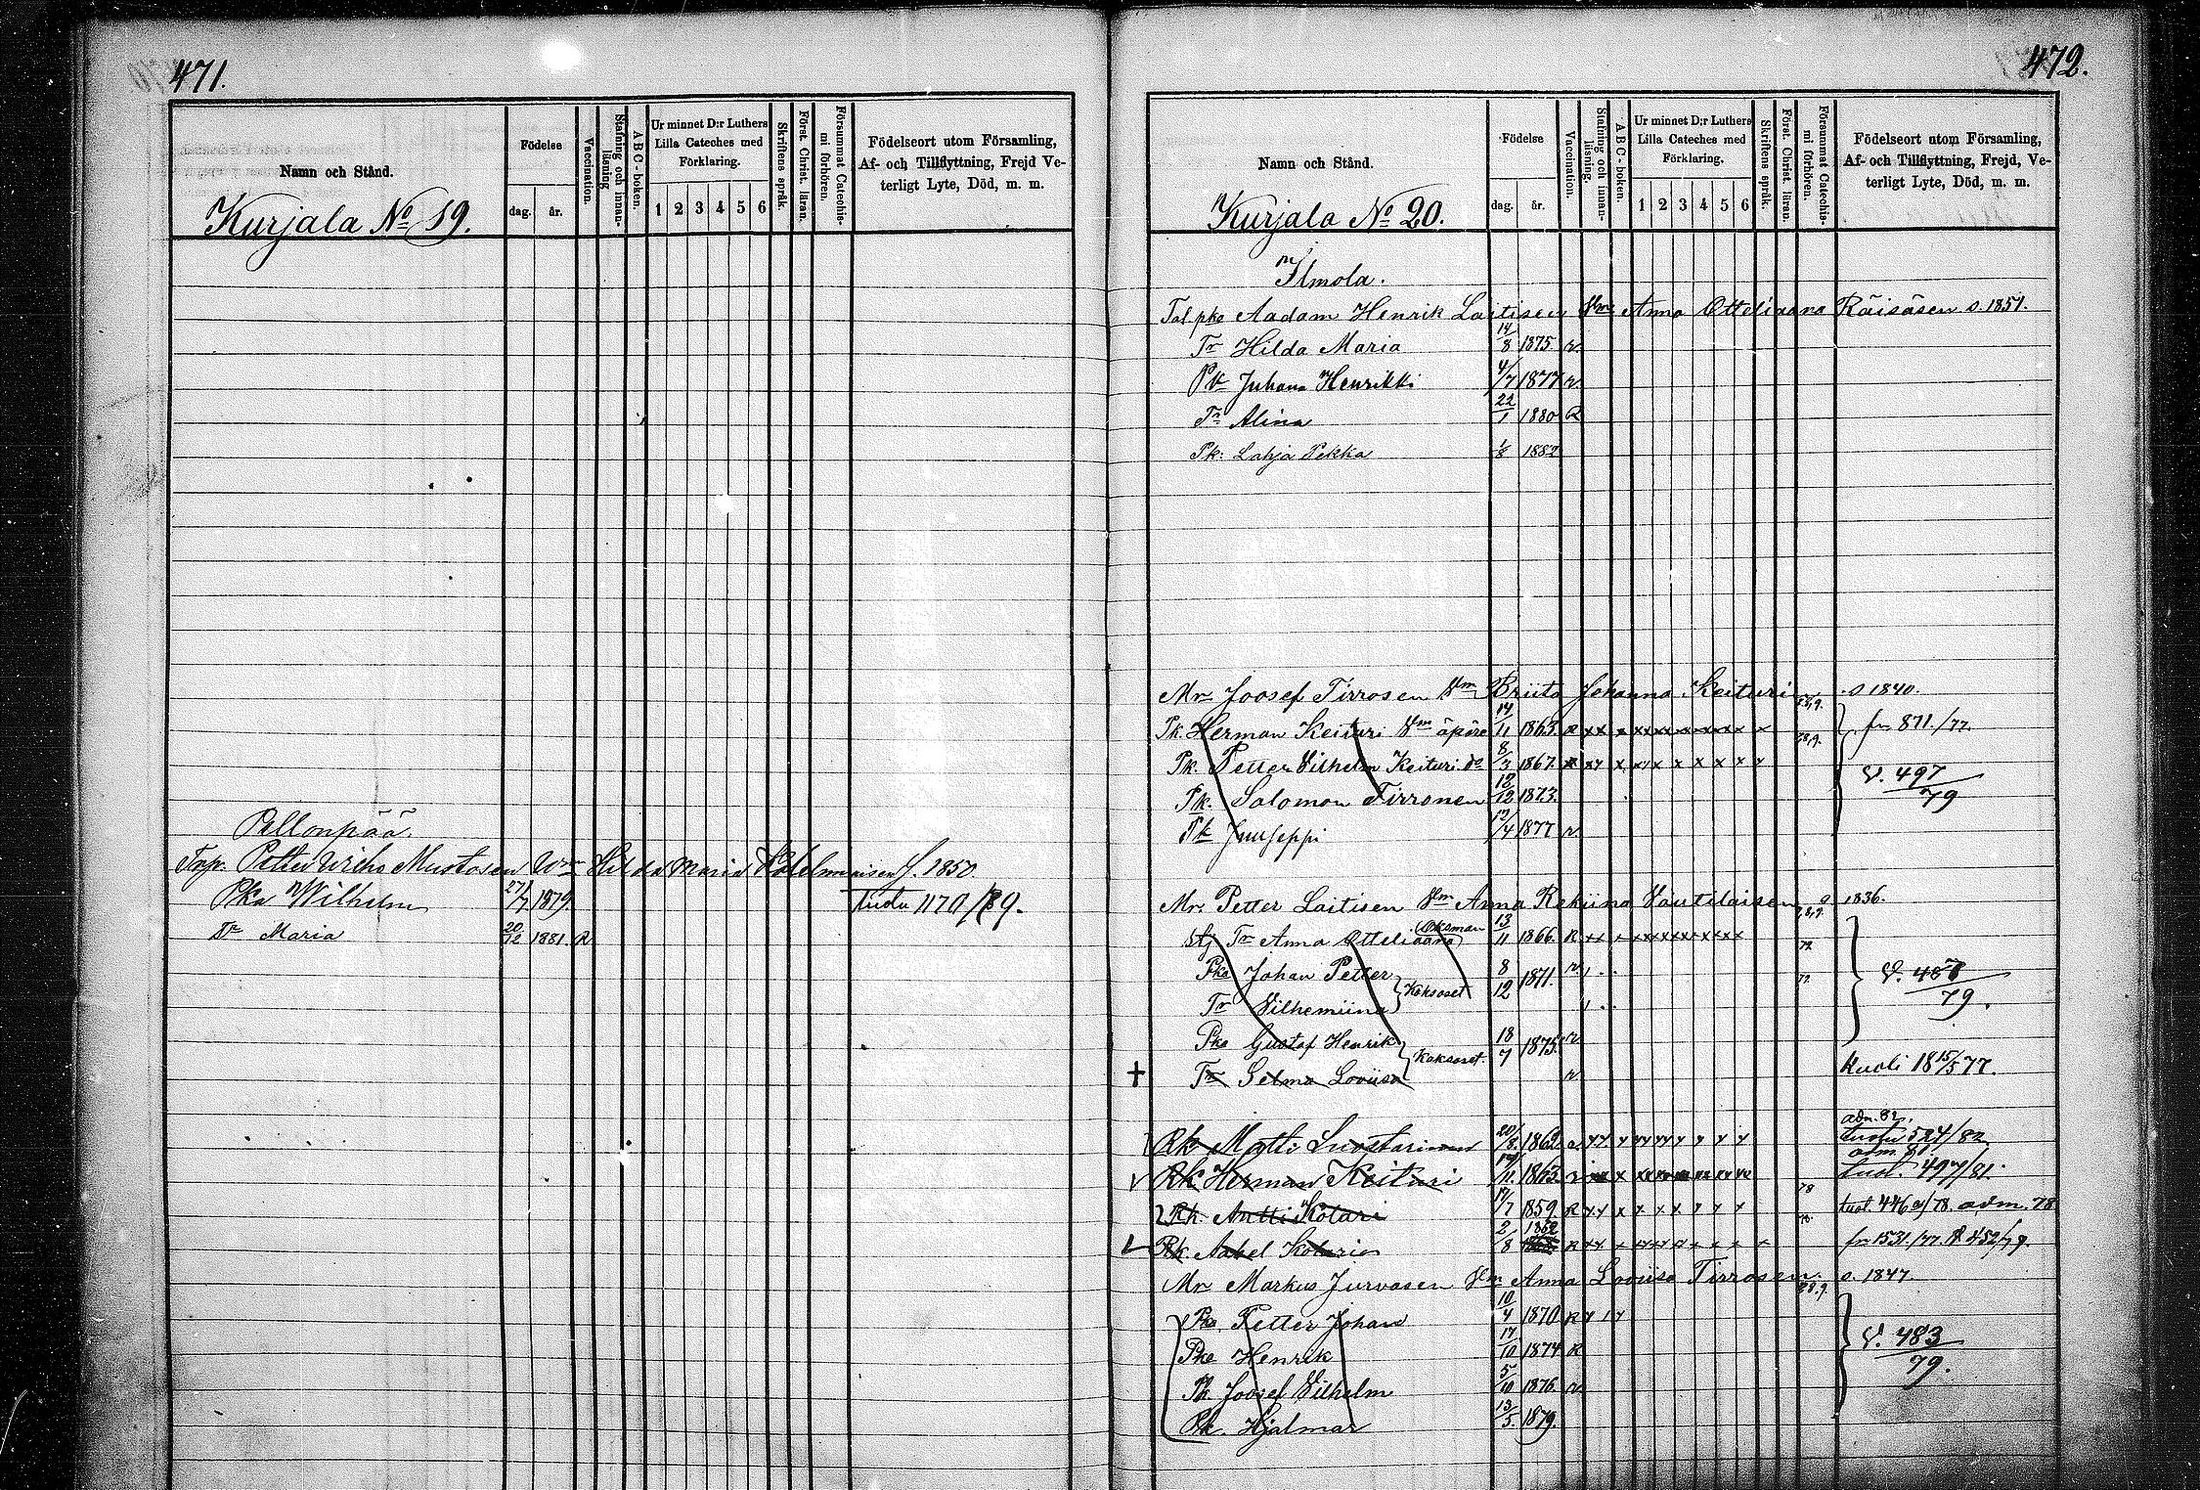 471.
Namn och Stånd.
Födelse
dag. år.
Vaccination.
Stafning och innan-
läsning
ABC-boken.
Ur minnet D:r Luthers
Lilla Cateches med
Förklaring.
1 2 3 4 5 6
Skriftens språk.
Först. Christ. läran.
Försummat Catechis-
mi förhören.
Födelseort utom Församling,
Af- och Tillflyttning, Frejd Ve-
terligt Lyte, Död, m. m.
Kurjala No 19.
Pellonpää
Petter Mustosen Hilda Maria f. 1850.
Pka Wilhelm 27/7 1879. 1170/79.
Tr Maria 20/12 1881. R
472.
Namn och Stånd.
Födelse
dag. år.
Vaccination.
Stafning och innan-
läsning.
ABC-boken.
Ur minnet D:r Luthers
Lilla Cateches med
Förklaring.
1 2 3 4 5 6
Skriftens språk.
Först. Christ. läran.
Försummat Catechis-
mi förhören.
Födelseort utom Församling,
Af- och Tillflyttning, Frejd, Ve-
terligt Lyte, Död, m. m.
Kurjala No 20.
Ilmola.
Tal. pka Aadam Henrik Laitisen Vm Anna Otteliaana Räisäsen s. 1851.
Tr Hilda Maria 14/8 1875 v.
Pk Juhana Henrikki 4/7 1877 v.
Tr Alina 22/1 1880 R
Pk: Lahja Pekka 1/8 1882
Mr Joosef Tirrosen Vm Briita Johanna Keituri s 1840.
Pk. Herman Keituri Vm äpäre 14/11 1863. R xx x xx xx x x x x x fr. 871/77.
Pk. Petter Vilhelm Keituri do 8/3 1867. x x x x x x x V. 497/79
Pk. Salomon Tirronen 12/12 1873.
Pk Juuseppi 12/4 1877 v
Mr. Petter Laitisen Vm Anna Rekiina Väutiläisen s 1836.
Oksman
Tr Anna Otteliaana 13/11 1866. R xx x
Pka Johan Petter 8/12 1871. v
Koksoset
Tr Vilhemiina
V. 487/79.
Pka Gustaf Henrik 18/7 1875. v
Koksoset.
† Tr Selma Loviisa v Kuoli 18 15/5 77.
adm. 82.
Rk Matti Luostarinen 20/8 1862. 524/82
adm. 81.
Rk Herman Keituri 14/11 1863. tuol. 497/81.
Rk. Antti Kotari 17/7 1859. R tuol. 446 a/78. adm. 78
Rk. Aabel Kotari 2/8 1862 R fr 1531/77.
Mr Markus Jurvasen Vm Anna Loviisa Tirrosen s. 1847.
Pka Petter Johan 10/4 1870 R
Pka Henrik 17/10 1874 R
V. 483/79.
Pk. Joosef Vilhelm 5/10 1876 v
Pk. Hjalmar 13/5 1879.